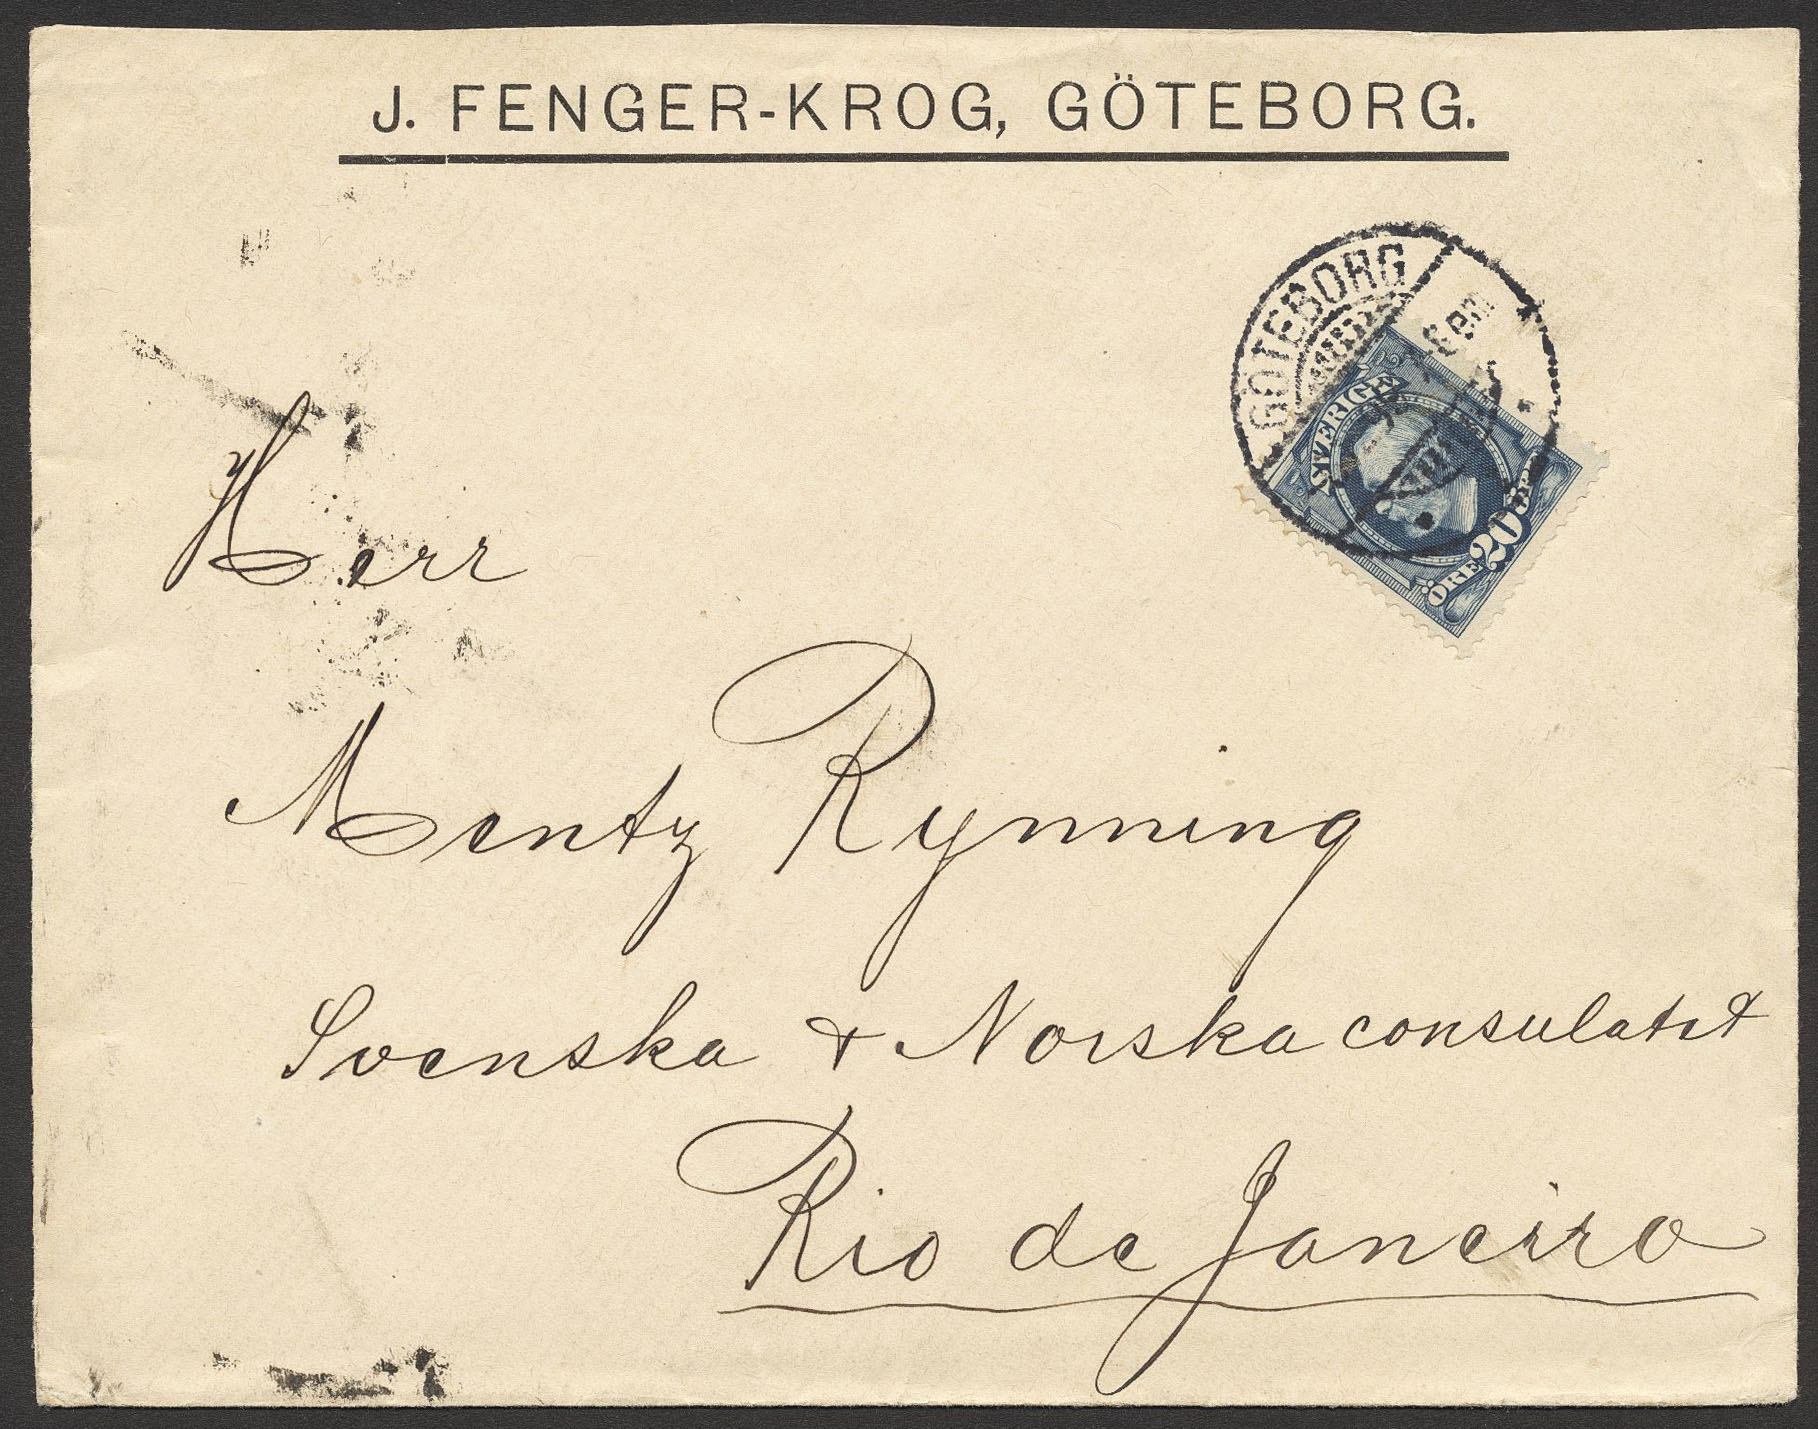 J. FENGER-KROG, GÖTEBORG.
GÖTEBORG
SVERIGE
ÖRE 20 ÖRE
Herr
Mentz Rynning
Svenska & Norska consulatet
Rio de Janeiro